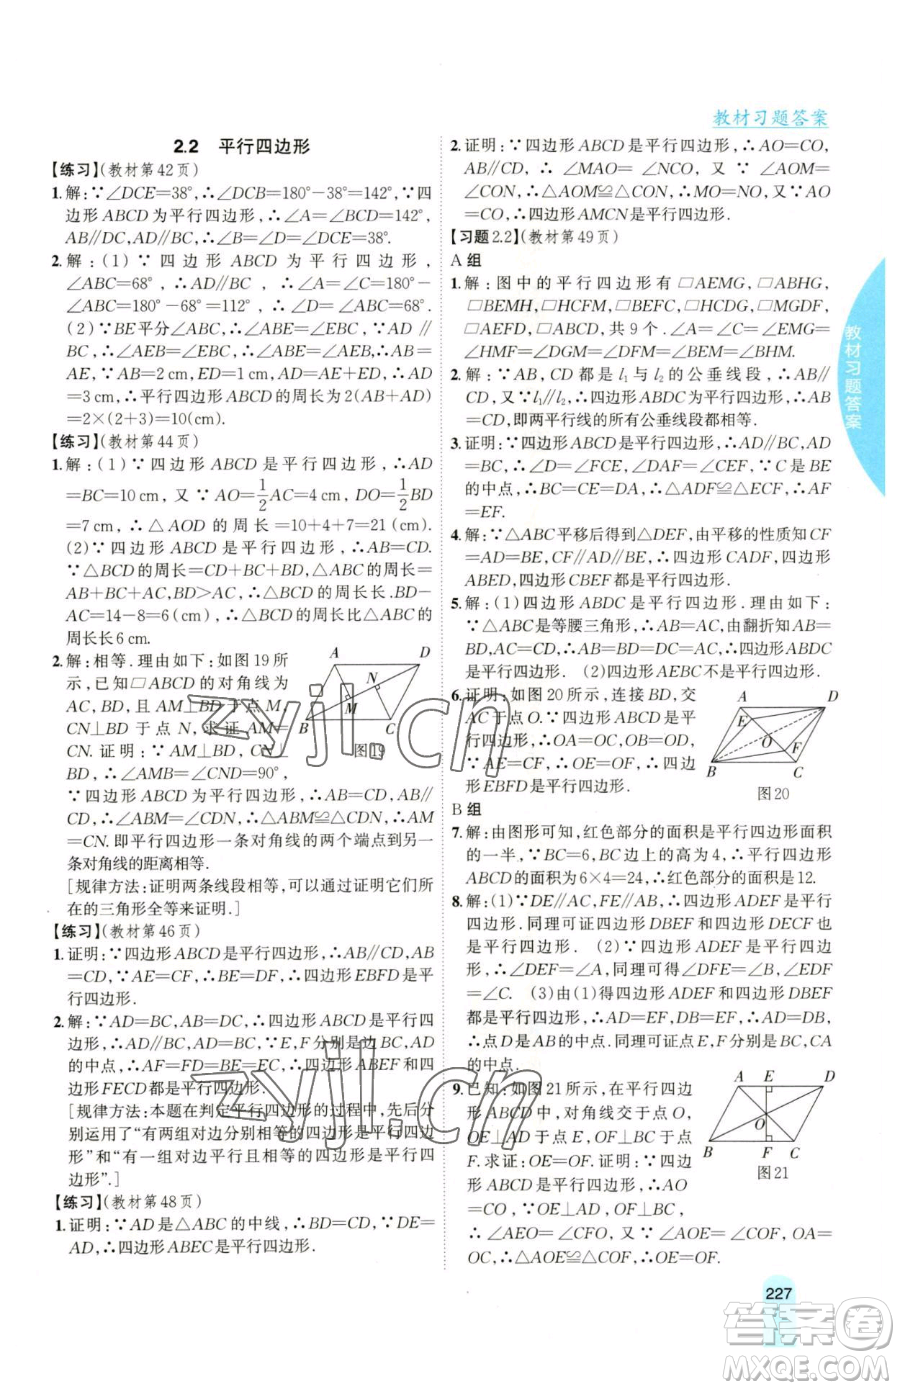 教材习题答案
2.2 平行四边形
【练习】(教材第42页)
1.解:∵∠DCE=38°,∴∠DCB=180°-38°=142°,∵四
边形ABCD为平行四边形,∴∠A=∠DCB=142°,
AB∥DC,AD∥BC,∴∠B=∠DCE=38°.
2.解:(1)∵四边形ABCD为平行四边形,
∠ABC=68°,∴AD∥BC,∴∠D=∠ABC=68°,
∴∠A=180°-68°=112°,∴∠D=68°.
(2)∵BE平分∠ABC,∴∠ABE=∠EBC,∵AD∥
BC,∴∠AEB=∠EBC,∴∠AEB=∠ABE,∴AB=
AE,∵AB=2 cm,ED=1 cm,∴AD=AE+ED
=3 cm,∴平行四边形ABCD的周长为2(AB+AD)
=2×(2+3)=10(cm).
【练习】(教材第44页)
1.解:(1)∵四边形ABCD是平行四边形,∴AD
=BC=10 cm,又∵AO=1/2AC=4 cm,DO=1/2BD
=7 cm,∴△AOD的周长=10+4+7=21(cm).
(2)∵四边形ABCD是平行四边形,∴AB=CD.
∵△BCD的周长=CD+BC+BD,△ABC的周长=
AB+BC+AC,BD>AC,∴CD+BC+BD-AB-BC-
AC=14-8=6(cm),∴△BCD的周长比△ABC的
周长长6 cm.
2.解:相等.理由如下:如图19所
示,已知□ABCD的对角线为
AC,BD,且AM⊥BD于点M,
CN⊥BD于点N,求证AM=
CN.证明:∵AM⊥BD,CN⊥
BD,∴∠AMB=∠CND=90°,
∵四边形ABCD为平行四边形,∴AB∥CD,AB=
CD,∴∠ABM=∠CDN,∴△ABM≌△CDN,∴AM
=CN.即平行四边形一条对角线的两个端点到另一
条对角线的距离相等.
[规律方法:证明两条线段相等,可以通过证明其所
在的三角形全等来证明.]
A
D
N
M
B
C
图19
【练习】(教材第46页)
1.证明:∵四边形ABCD是平行四边形,∴AB∥CD,AB
=CD,∵AE=CF,∴BE=DF,∴四边形EBFD是平
行四边形.
2.解:∵AD=BC,AB=DC,∴四边形ABCD是平行四
边形,∴AD∥BC,AD=BC.∵E,F分别是边BC,AD
的中点,∴AF=FD=BE=EC,∴四边形ABEF和四
边形FECD都是平行四边形.
[规律方法:本题在判定平行四边形的过程中,先后分
别运用了“有两组对边分别相等的四边形是平行四边
形”和“有一组对边平行且相等的四边形是平行四
边形”.]
【练习】(教材第48页)
1.证明:∵AD是△ABC的中线,∴BD=CD,∵DE=
AD,∴四边形ABEC是平行四边形.
2.证明:∵四边形ABCD是平行四边形,∴AO=CO,
AB∥CD,∴∠MAO=∠NCO,又∵∠AOM=
∠CON,∴△AOM≌△CON,∴MO=NO,又∵AO
=CO,∴四边形AMCN是平行四边形.
【习题2.2】(教材第49页)
A组
1.解:图中的平行四边形有□AEMG,□ABHG,
□BEMH,□HCFM,□BEFC,□HCDG,□MGDF,
□AEFD,□ABCD,共9个.∠A=∠EMG=
∠HMF=∠C,∠AEM=∠GMF=∠BHM.
2.解:AB,CD都是l₁与l₂的公垂线段,∴AB∥CD,
又∵l₁∥l₂,∴四边形ABDC为平行四边形,∴AB=
CD,即两平行线的所有公垂线段都相等.
3.证明:∵四边形ABCD是平行四边形,∴AD∥BC,AD=
BC,∴∠D=∠FCE,∠DAF=∠CEF,∵C是BE
的中点,∴BC=CE=DA,∴△ADF≌△ECF,∴AF
=EF.
4.解:∵△ABC平移后得到△DEF,由平移的性质知CF
=AD=BE,CF∥AD∥BE,∴四边形CADF,四边形
ABED,四边形CBEF都是平行四边形.
5.解:(1)四边形ABDC是平行四边形.理由如下:
∵△ABC是等腰三角形,∴AB=AC,由翻折知AB=
BD,AC=CD,∴AB=CD,AC=BD,∴四边形ABDC
是平行四边形. (2)四边形AEBC不是平行四边形.
6.证明:如图20所示,连接BD,交
AC于点O.∵四边形ABCD是平
行四边形,∴OA=OC,OB=OD.
∵AE=CF,∴OE=OF,∴四边
形EBFD是平行四边形.
A
D
E
O
F
B
C
图20
B组
7.解:由图形可知,红色部分的面积是平行四边形面积
的一半,∵BC=6,BC边上的高为4,∴平行四边形
ABCD的面积为6×4=24,∴红色部分的面积是12.
8.解:(1)∵DE∥AC,FE∥AB,∴四边形ADEF是平行
四边形.同理可得四边形DBEF和四边形DECF也
是平行四边形. (2)∵四边形ADEF是平行四边形,
∴∠DEF=∠A,同理可得∠DFE=∠B,∠EDF
=∠C. (3)由(1)得四边形ADEF和四边形DBEF
都是平行四边形,∴AD=EF,DB=EF,∴AD=DB,
∴点D是AB的中点.同理可得E,F分别是BC,AC
的中点.
9.已知:如图21所示,在平行四边
形ABCD中,对角线交于点O,
OE⊥AD于点E,OF⊥BC于点
F.求证:OE=OF.证明:∵四边
形ABCD是平行四边形,∴AD∥
BC,OA=OC,∵OE⊥AD,OF⊥BC,
∴∠AEO=∠CFO,又∵∠AOE=∠COF,OA=
OC,∴△AOE≌△COF,∴OE=OF.
A
E
D
O
B
F
C
图21
教材习题答案
227
zyjl.cn
zyjl.cn
答案圈
MXQE.COM